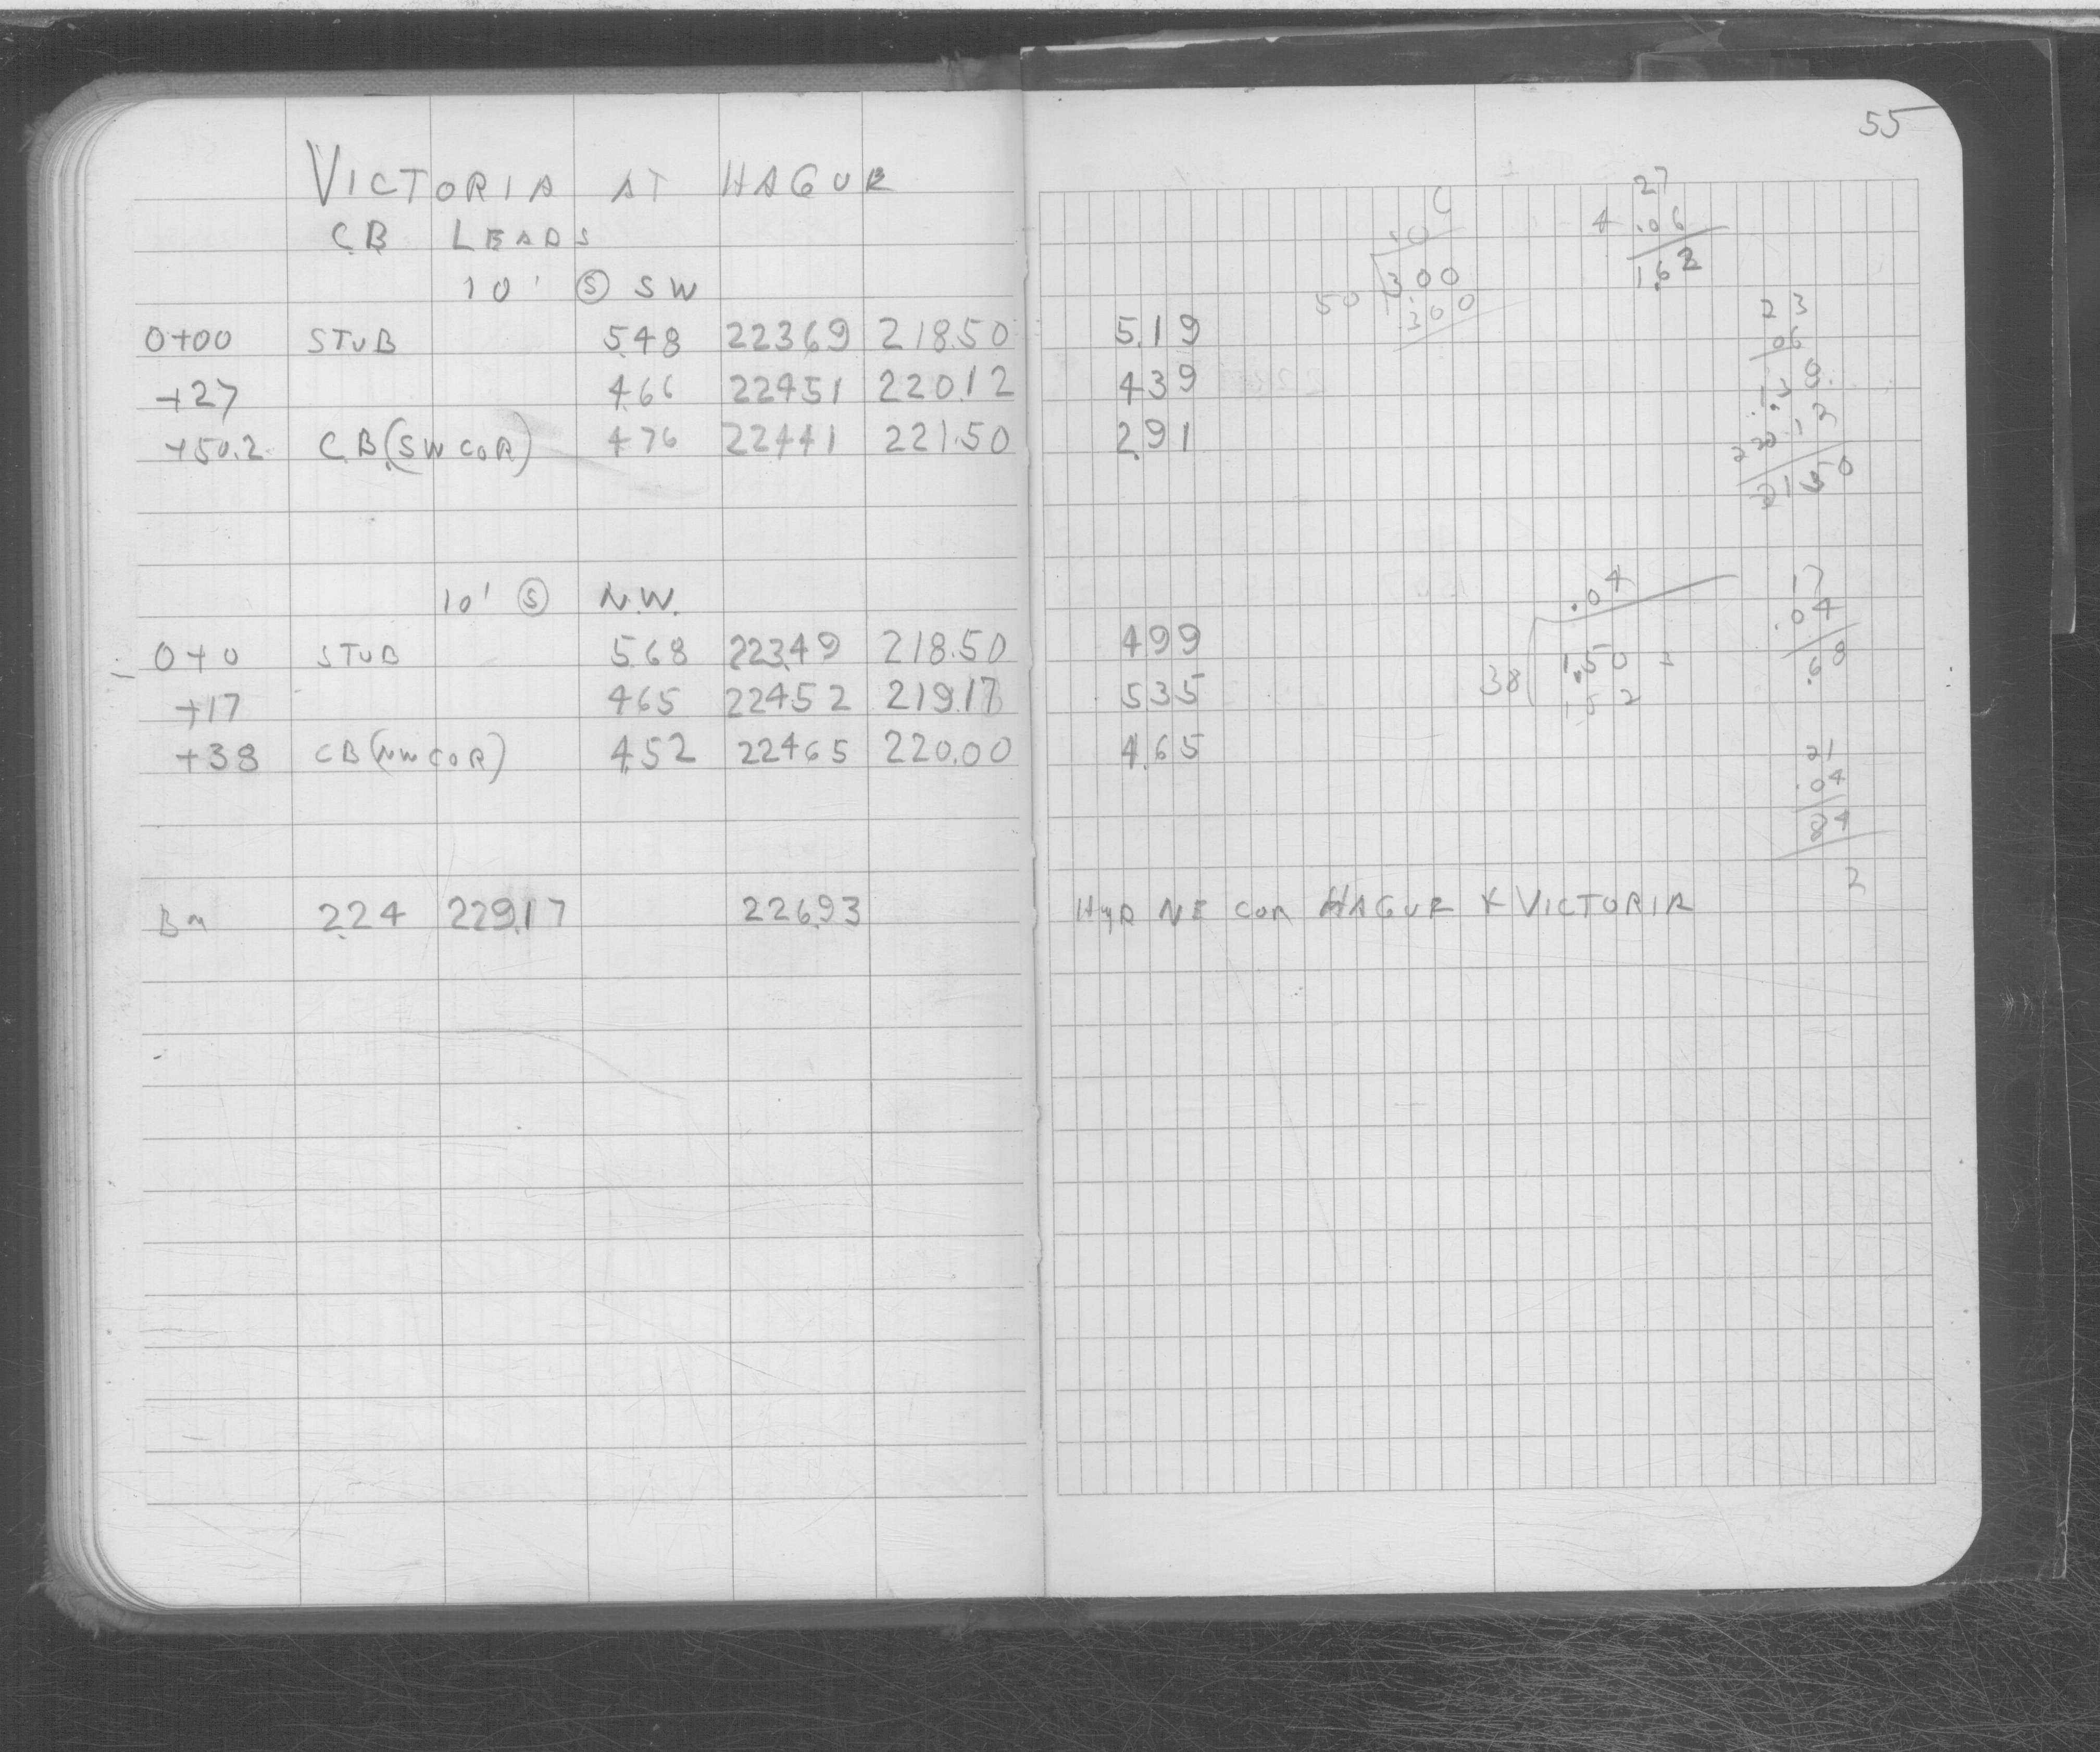 55
VICTORIA AT HAGUE
CB LEADS
10' Ⓢ SW
0+00 STUB 5.48 223.69 218.50 5.19
+27 4.66 224.51 220.12 4.39
+50.2 C.B.(SW COR) 4.76 224.41 221.50 2.91
10' Ⓢ N.W.
0+0 STUB 5.68 223.49 218.50 4.99
+17 4.65 224.52 219.17 5.35
+38 CB (NW COR) 4.52 224.65 220.00 4.65
BM 2.24 229.17 226.93 HYD NE COR HAGUE & VICTORIA
50 3.00
300
27
.06
1.62
23
06
1.38
220.12
.04
38 1.50
152
17
.04
.68
21
.04
84
2